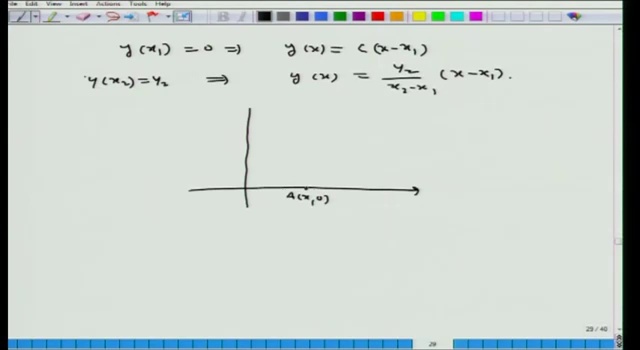 View Insert Actions Tools Help
y(x₁) = 0 ⇒ y(x) = C(x-x₁)
y(x₂) = y₂ ⇒ y(x) = y₂/(x₂-x₁) (x-x₁).
A(x₁,0)
29 / 40
29